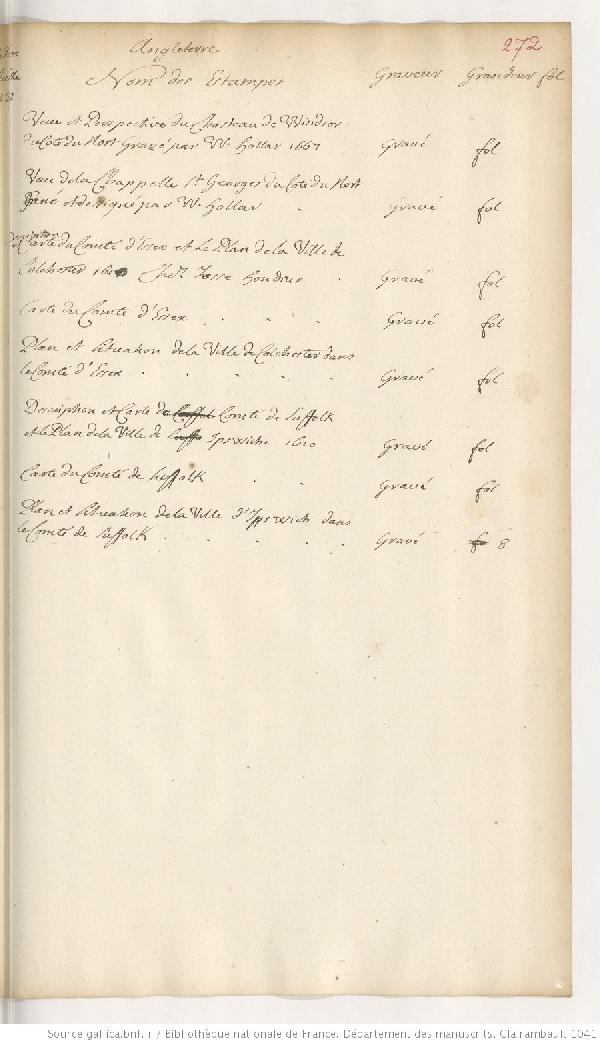 Angleterre
272
Nom des Estampes Graveur Grandeur fol
Veue et Perspective du Chasteau de Windsor
du Coté du Nort Gravé par W. Hollar 1667 Gravé fol
Veue de la Chappelle St Georges du Coté du Nort
et designé par W. Hollar . Gravé fol
Carte du Comté d'Essex et le Plan de la Ville de
Colchester Chez Hondius . Gravé fol
Carte du Comté d'Essex . . . Gravé fol
Plan et Situation de la Ville de Colchester dans
le Comté d'Essex . . . . . Gravé fol
Description et Carte du Comté de Suffolk
et le Plan de la Ville de Ipswich 1610 Gravé fol
Carte du Comté de Suffolk . . Gravé fol
Plan et Situation de la Ville d'Ippswich dans
le Comté de Suffolk . . . . Gravé 8
Source gallica.bnf.fr / Bibliothèque nationale de France. Département des manuscrits. Clairambault 1041